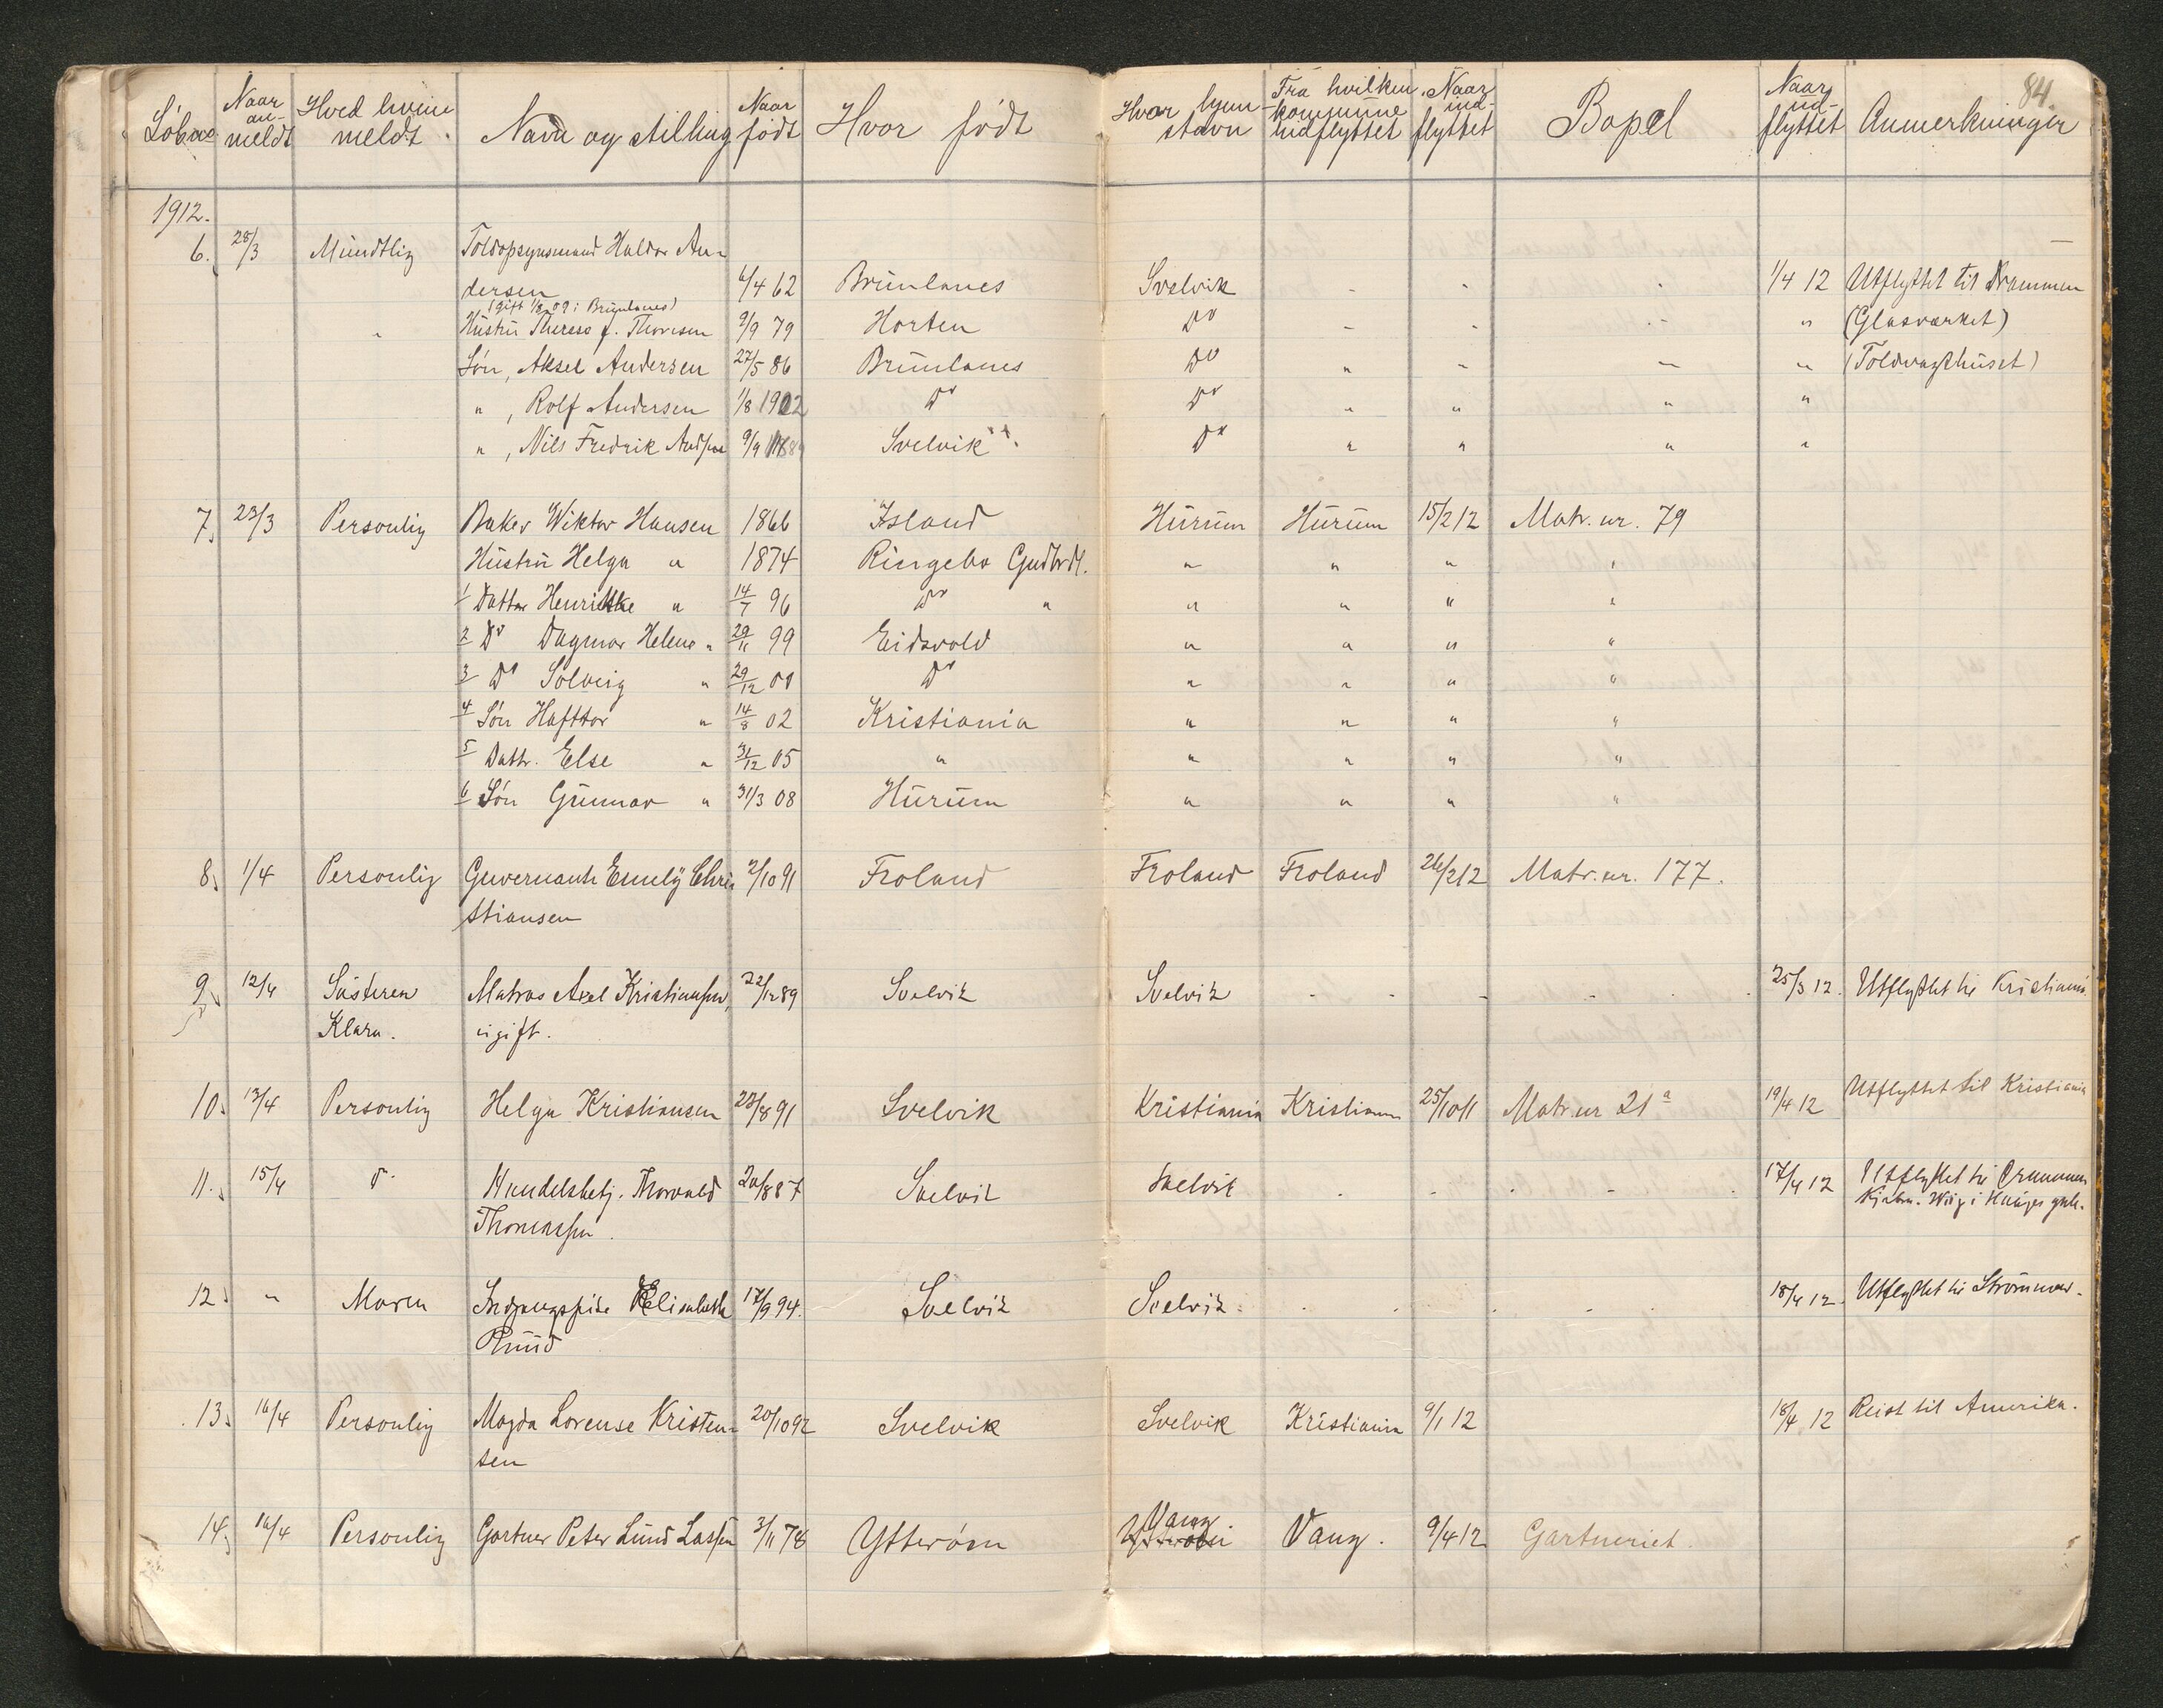 84.
Löbnr Naar anmeldt Hved hvem meldt. Navn og stilling Naar födt Hvor födt Hvor hjemstavn Fra hvilken kommune indflyttet Naar indflyttet Bopel Naar udflyttet Anmerkninger
1912.
6. 28/3 Mündtlig Toldopsynsmand Haldor An-
dersen 6/4 62 Brünlanes Svelvik - - - 1/4 12 Utflyttet til Drammen
(gift 1/2 09 i Brünlanes)
" Hüstrü Therese f. Thoresen 9/9 79 Horten Do - - - " (Glasværket)
Sön, Aksel Andersen 27/5 86 Brünlanes Do " - - " (Toldvagthüset)
" , Rolf Andersen 1/8 1902 Do Do " " " "
" , Nils Fredrik Andsen 9/9 Svelvik Do " " " "
7. 23/3 Personlig Baker Wiktor Hansen 1866 Island Hürüm Hürüm 15/2 12 Matr. nr. 79
Hüstrü Helga " 1874 Ringebo Gudbrdl. " " " "
1 Datter Henrikke " 14/7 96 Do " " " " "
2 Do Dagmar Helene " 29/11 99 Eidsvold " " " "
3 Do Solveig " 29/12 00 Do " " " "
4 Sön Hafttor " 14/8 02 Kristiania " " " "
5 Dattr. Else " 31/12 05 " " " " "
6 Sön Günnar " 31/3 08 Hürüm " " " "
8. 1/4 Personlig Guvernante Emely Chri 2/10 91 Froland Froland Froland 26/2 12 Matr. nr. 177.
stiansen
9. 12/4 Süsteren Matros Axel Kristiansen, 22/12 89 Svelvik Svelvik - - - - 25/3 12. Utflyttet til Kristiania.
Klara. ugift.
10. 13/4 Personlig Helga Kristiansen 23/8 91 Svelvik Kristiania Kristiania 25/10 11 Matr. nr 21 a 19/4 12 Utflyttet til Kristiania
11. 15/4 do Handelsbetj. Thorvald 20/8 87 Svelvik Svelvik - - - - 17/4 12 Utflyttet til Drammen
Thomassen. Kjøbm. Wiig i Haüges gate.
12. " Moren Elisabeth 17/9 94. Svelvik Svelvik. - - - - 18/4 12. Utflyttet til Strömmen.
Rüüd
13. 16/4 Personlig Magda Lorense Kristen- 20/10 92 Svelvik Svelvik Kristiania 9/1 12 18/4 12 Reist til Amerika.
sen
14. 16/4 Personlig Gartner Peter Lünd Lassen 3/11 78 Ytterøen Vang Vang. 9/4 12 Gartneriet.